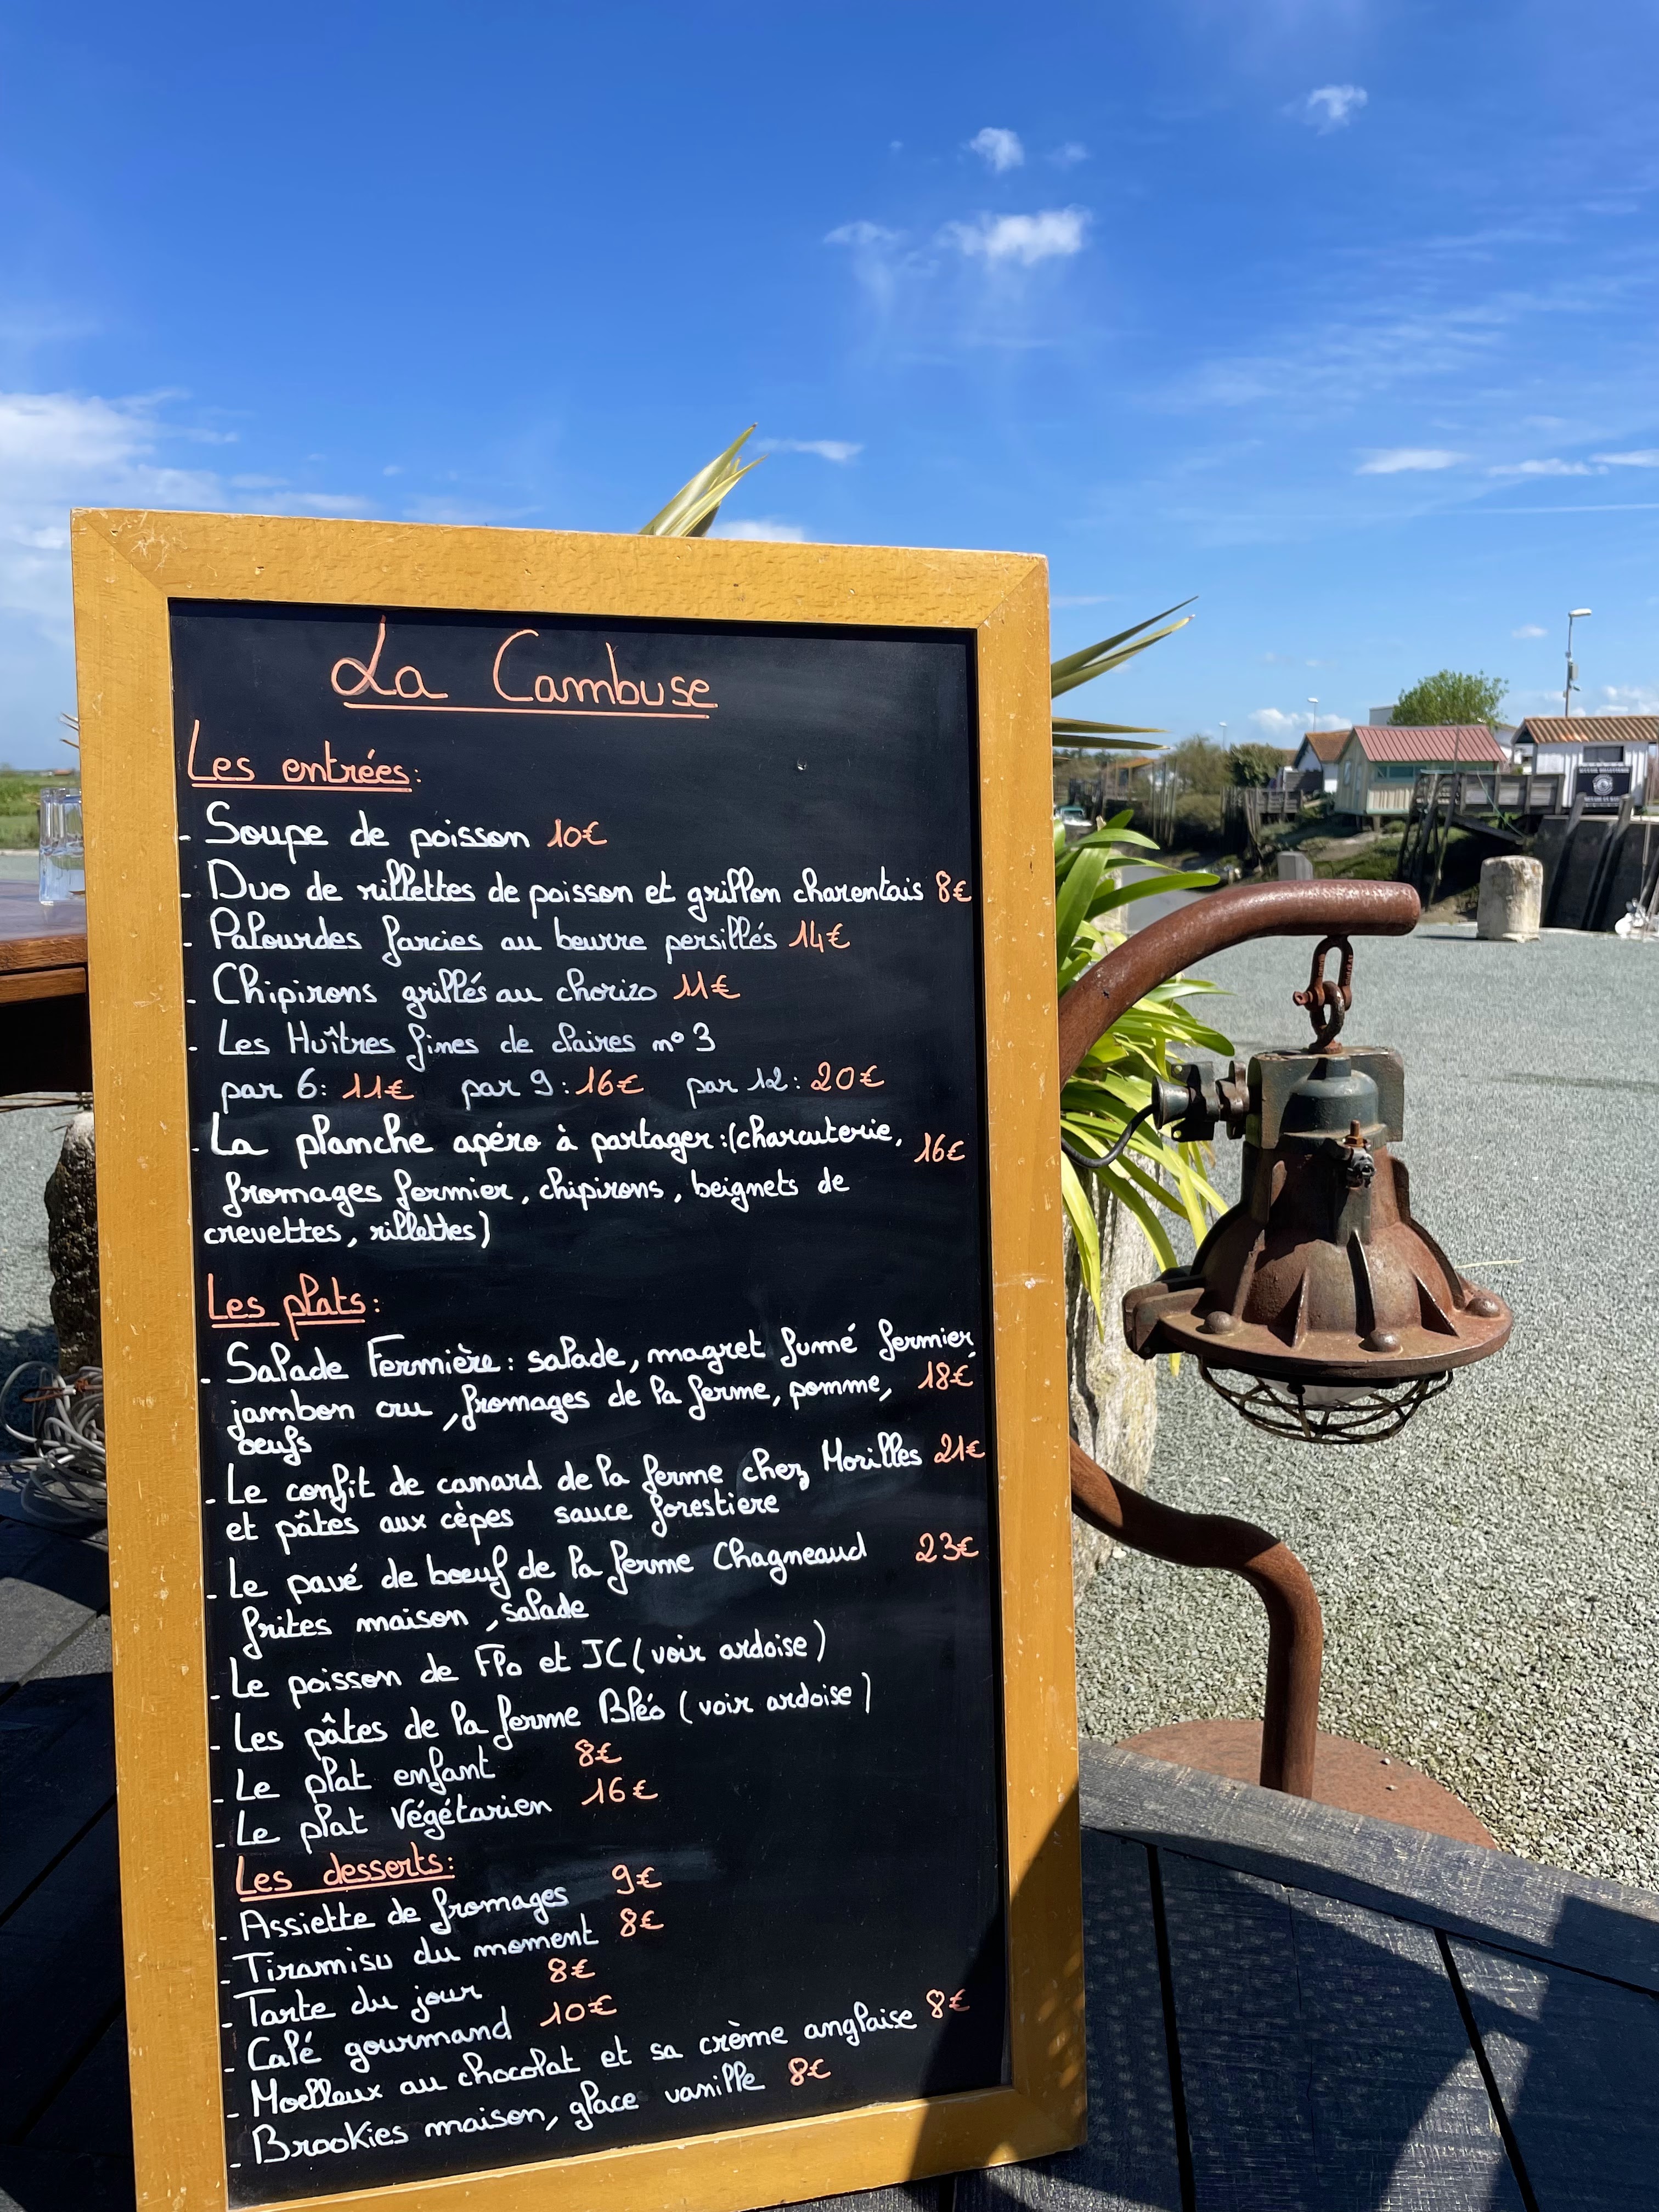 La Cambuse
Les entrées:
- Soupe de poisson 10€
- Duo de rillettes de poisson et grillon charentais 8€
- Palourdes farcies au beurre persillés 14€
- Chipirons grillés au chorizo 11€
- Les Huîtres fines de claires n° 3
par 6: 11€ par 9: 16€ par 12: 20€
- La planche apéro à partager: (charcuterie, 16€
fromages fermier, chipirons, beignets de
crevettes, rillettes)
Les plats:
- Salade Fermière: salade, magret fumé fermier,
jambon cru, fromages de la ferme, pomme, 18€
oeufs
- Le confit de canard de la ferme chez Morilles 21€
et pâtes aux cèpes sauce forestiere
- Le pavé de boeuf de la ferme Chagneaud 23€
frites maison, salade
- Le poisson de Flo et JC (voir ardoise)
- Les pâtes de la ferme Bléo (voir ardoise)
- Le plat enfant 8€
- Le plat Végétarien 16€
Les desserts:
- Assiette de fromages 9€
- Tiramisu du moment 8€
- Tarte du jour 8€
- Café gourmand 10€
- Moelleux au chocolat et sa crème anglaise 8€
- Brookies maison, glace vanille 8€